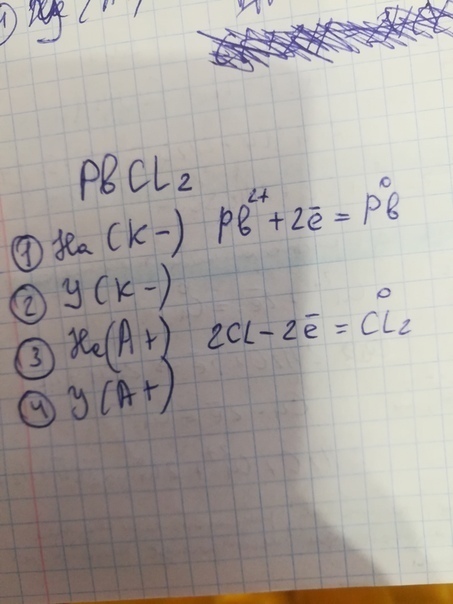 PbCL2
① На (К-) Pb²⁺ + 2ē = Pb⁰
② У (К-)
③ На (А+) 2CL - 2ē = CL2⁰
④ У (А+)